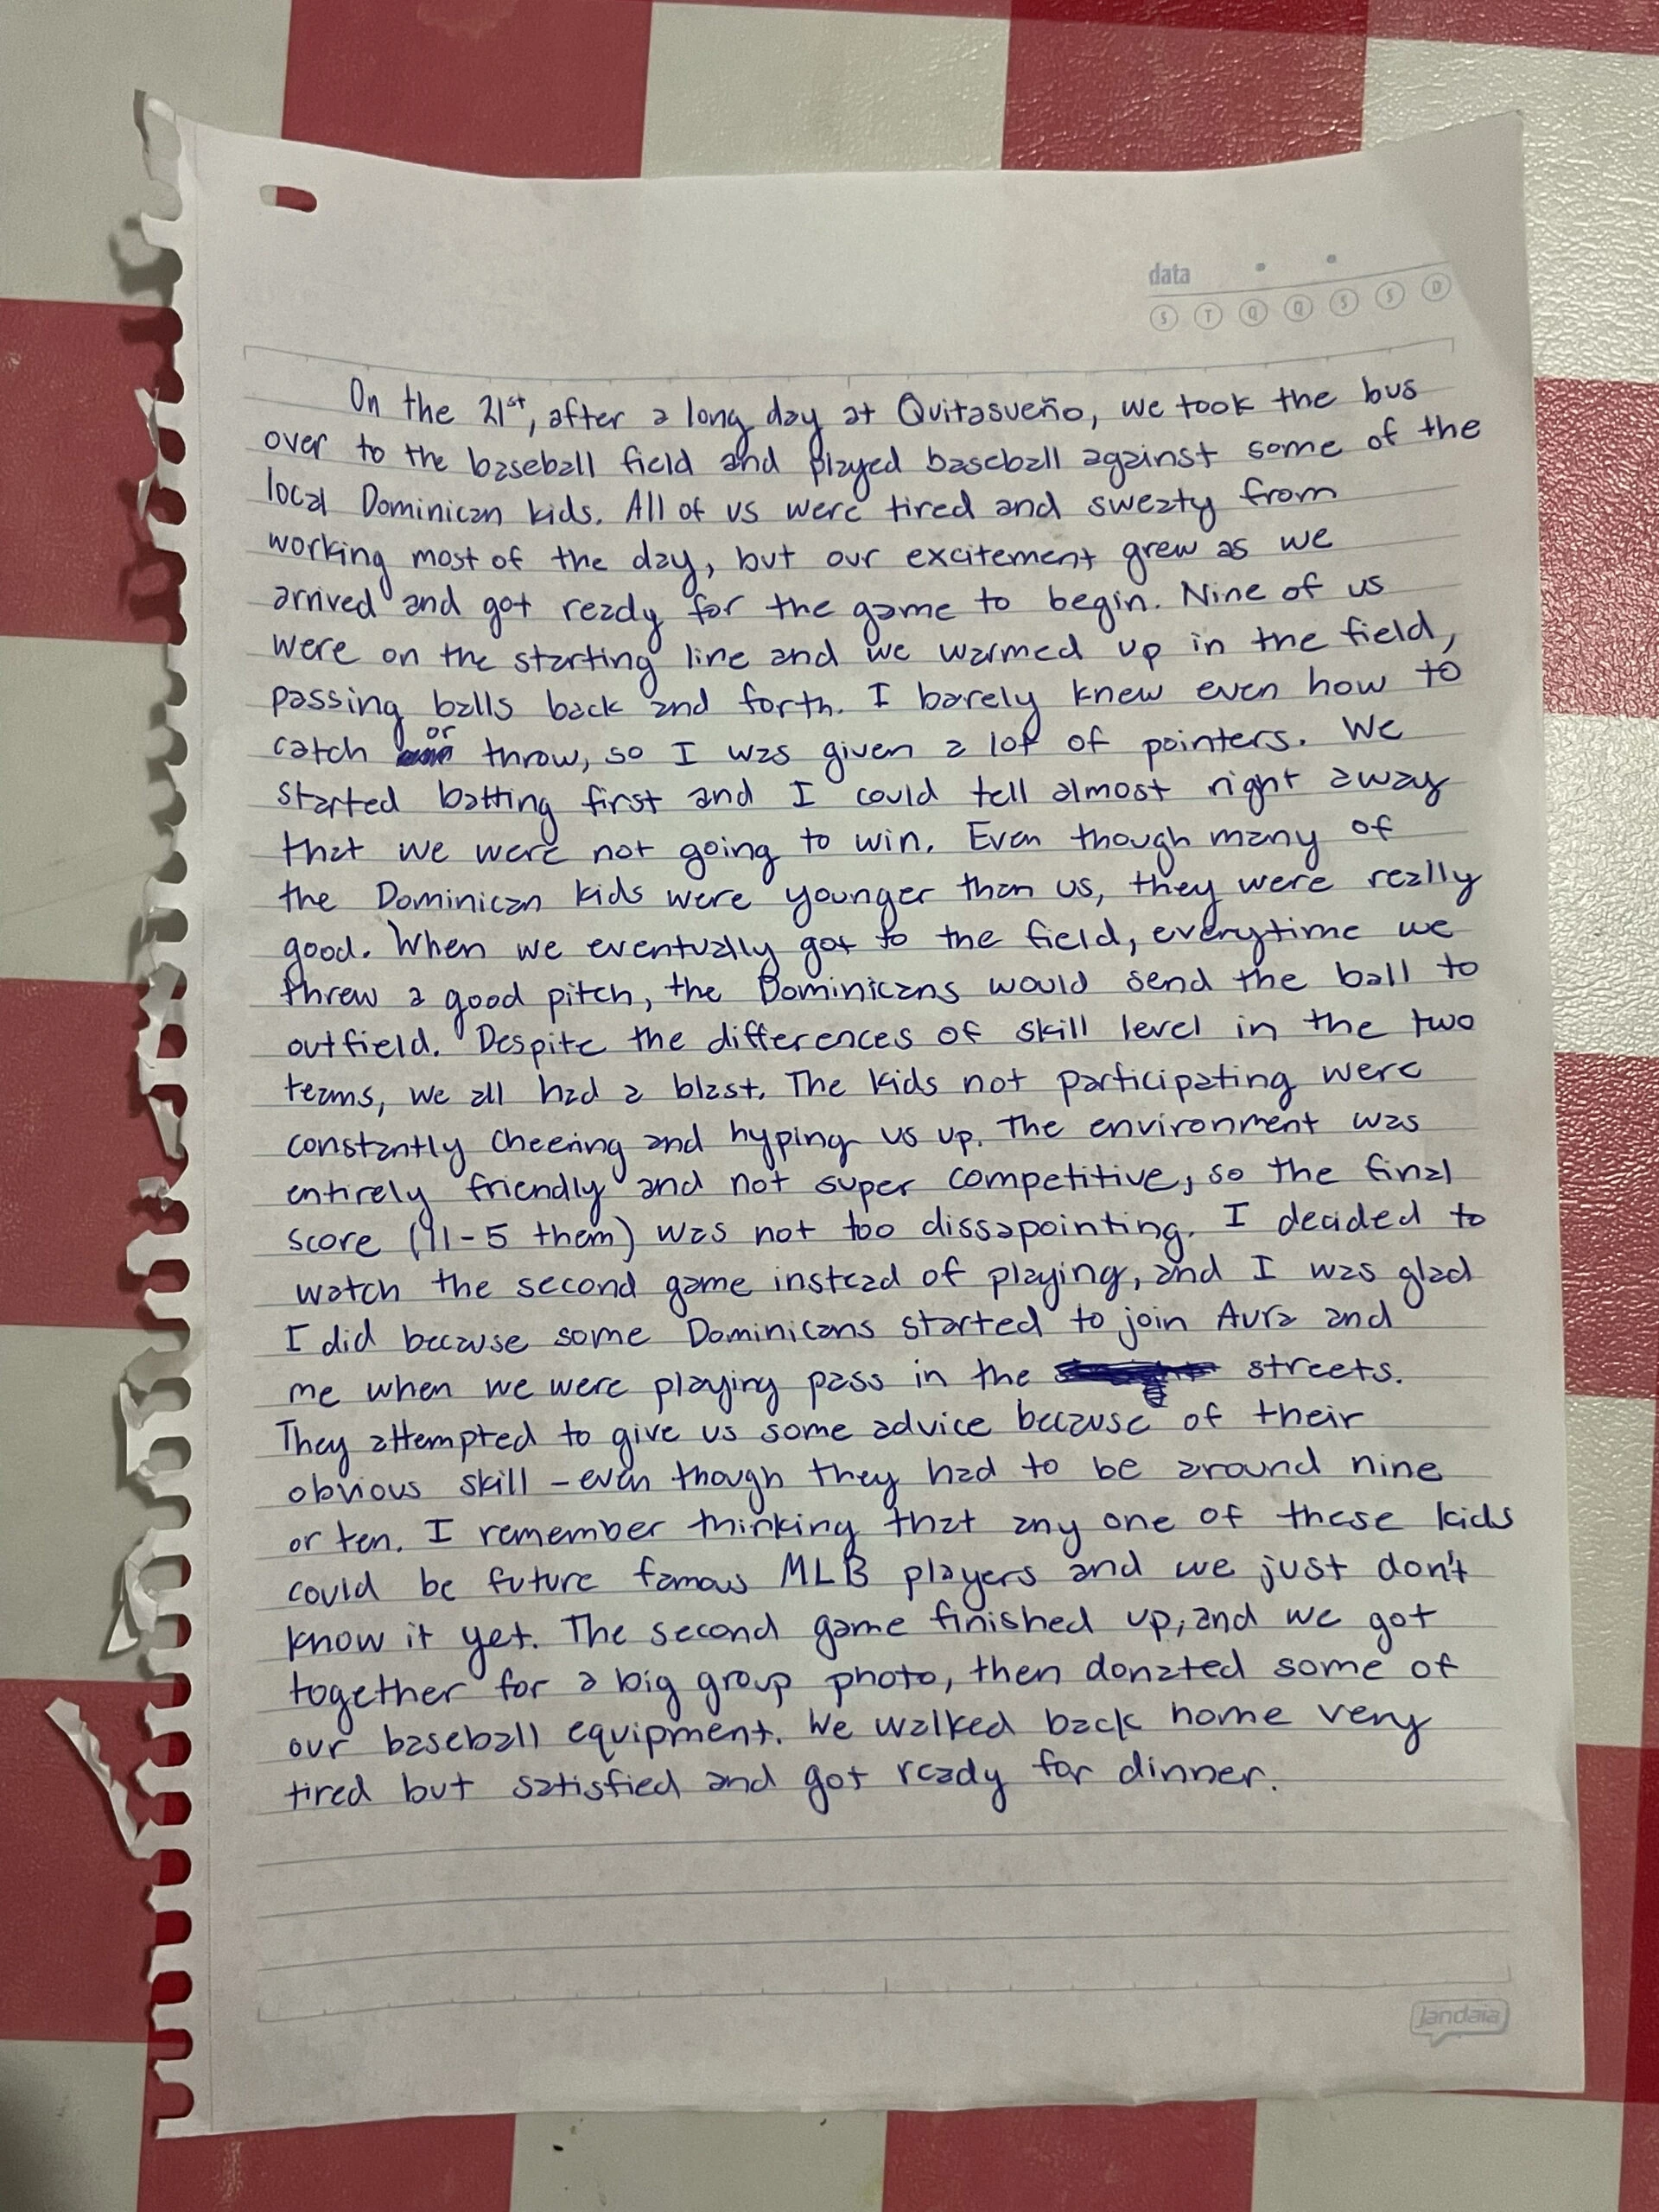 data
S T Q Q S S D
On the 21st, after a long day at Quitasueño, we took the bus
over to the baseball field and played baseball against some of the
local Dominican kids. All of us were tired and sweaty from
working most of the day, but our excitement grew as we
arrived and got ready for the game to begin. Nine of us
were on the starting line and we warmed up in the field,
passing balls back and forth. I barely knew even how to
catch or throw, so I was given a lot of pointers. We
started batting first and I could tell almost right away
that we were not going to win. Even though many of
the Dominican kids were younger than us, they were really
good. When we eventually got to the field, everytime we
threw a good pitch, the Dominicans would send the ball to
outfield. Despite the differences of skill level in the two
teams, we all had a blast. The kids not participating were
constantly cheering and hyping us up. The environment was
entirely friendly and not super competitive, so the final
score (11-5 them) was not too dissapointing. I decided to
watch the second game instead of playing, and I was glad
I did because some Dominicans started to join Aura and
me when we were playing pass in the streets.
They attempted to give us some advice because of their
obvious skill - even though they had to be around nine
or ten. I remember thinking that any one of these kids
could be future famous MLB players and we just don't
know it yet. The second game finished up, and we got
together for a big group photo, then donated some of
our baseball equipment. We walked back home very
tired but satisfied and got ready for dinner.
Jandaia